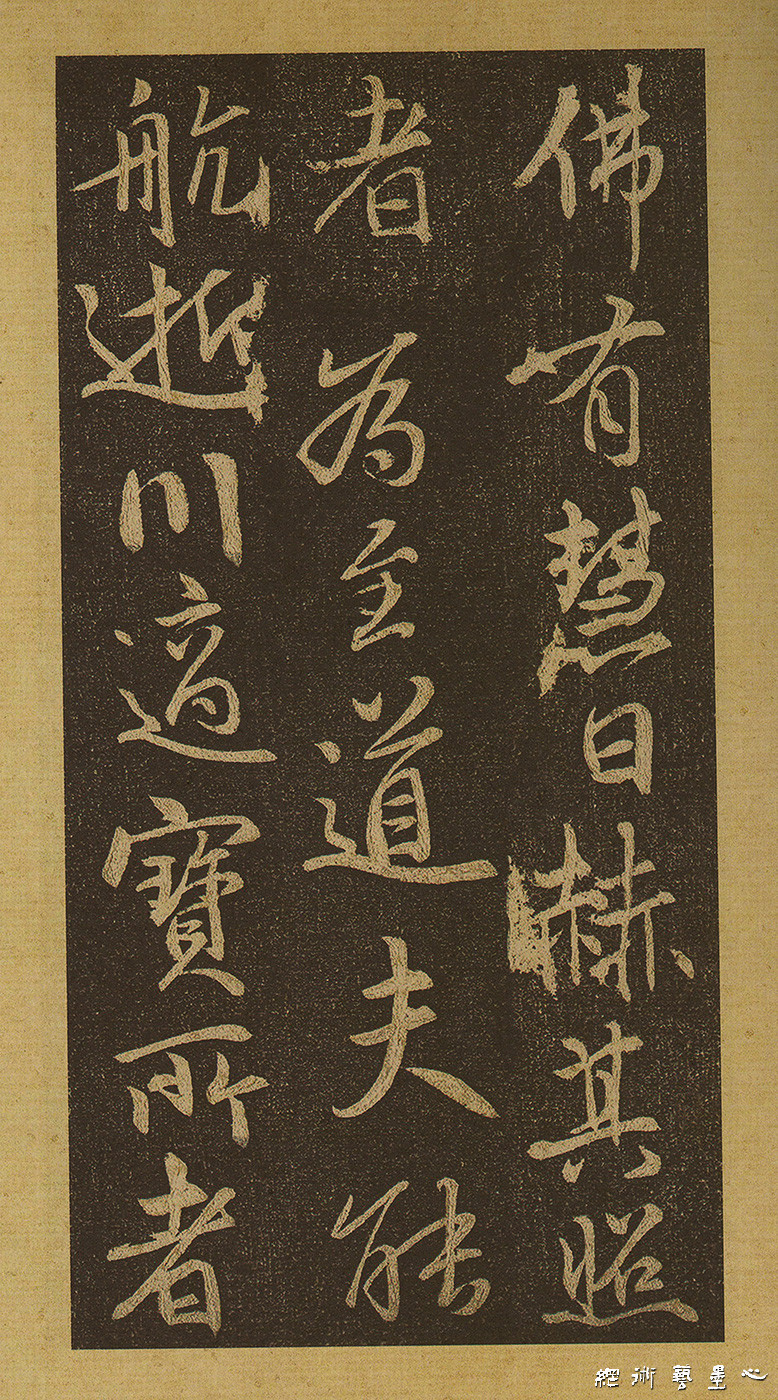 佛有慧日赫其照
者為至道夫能
航逝川適寶所者
心墨藝術網